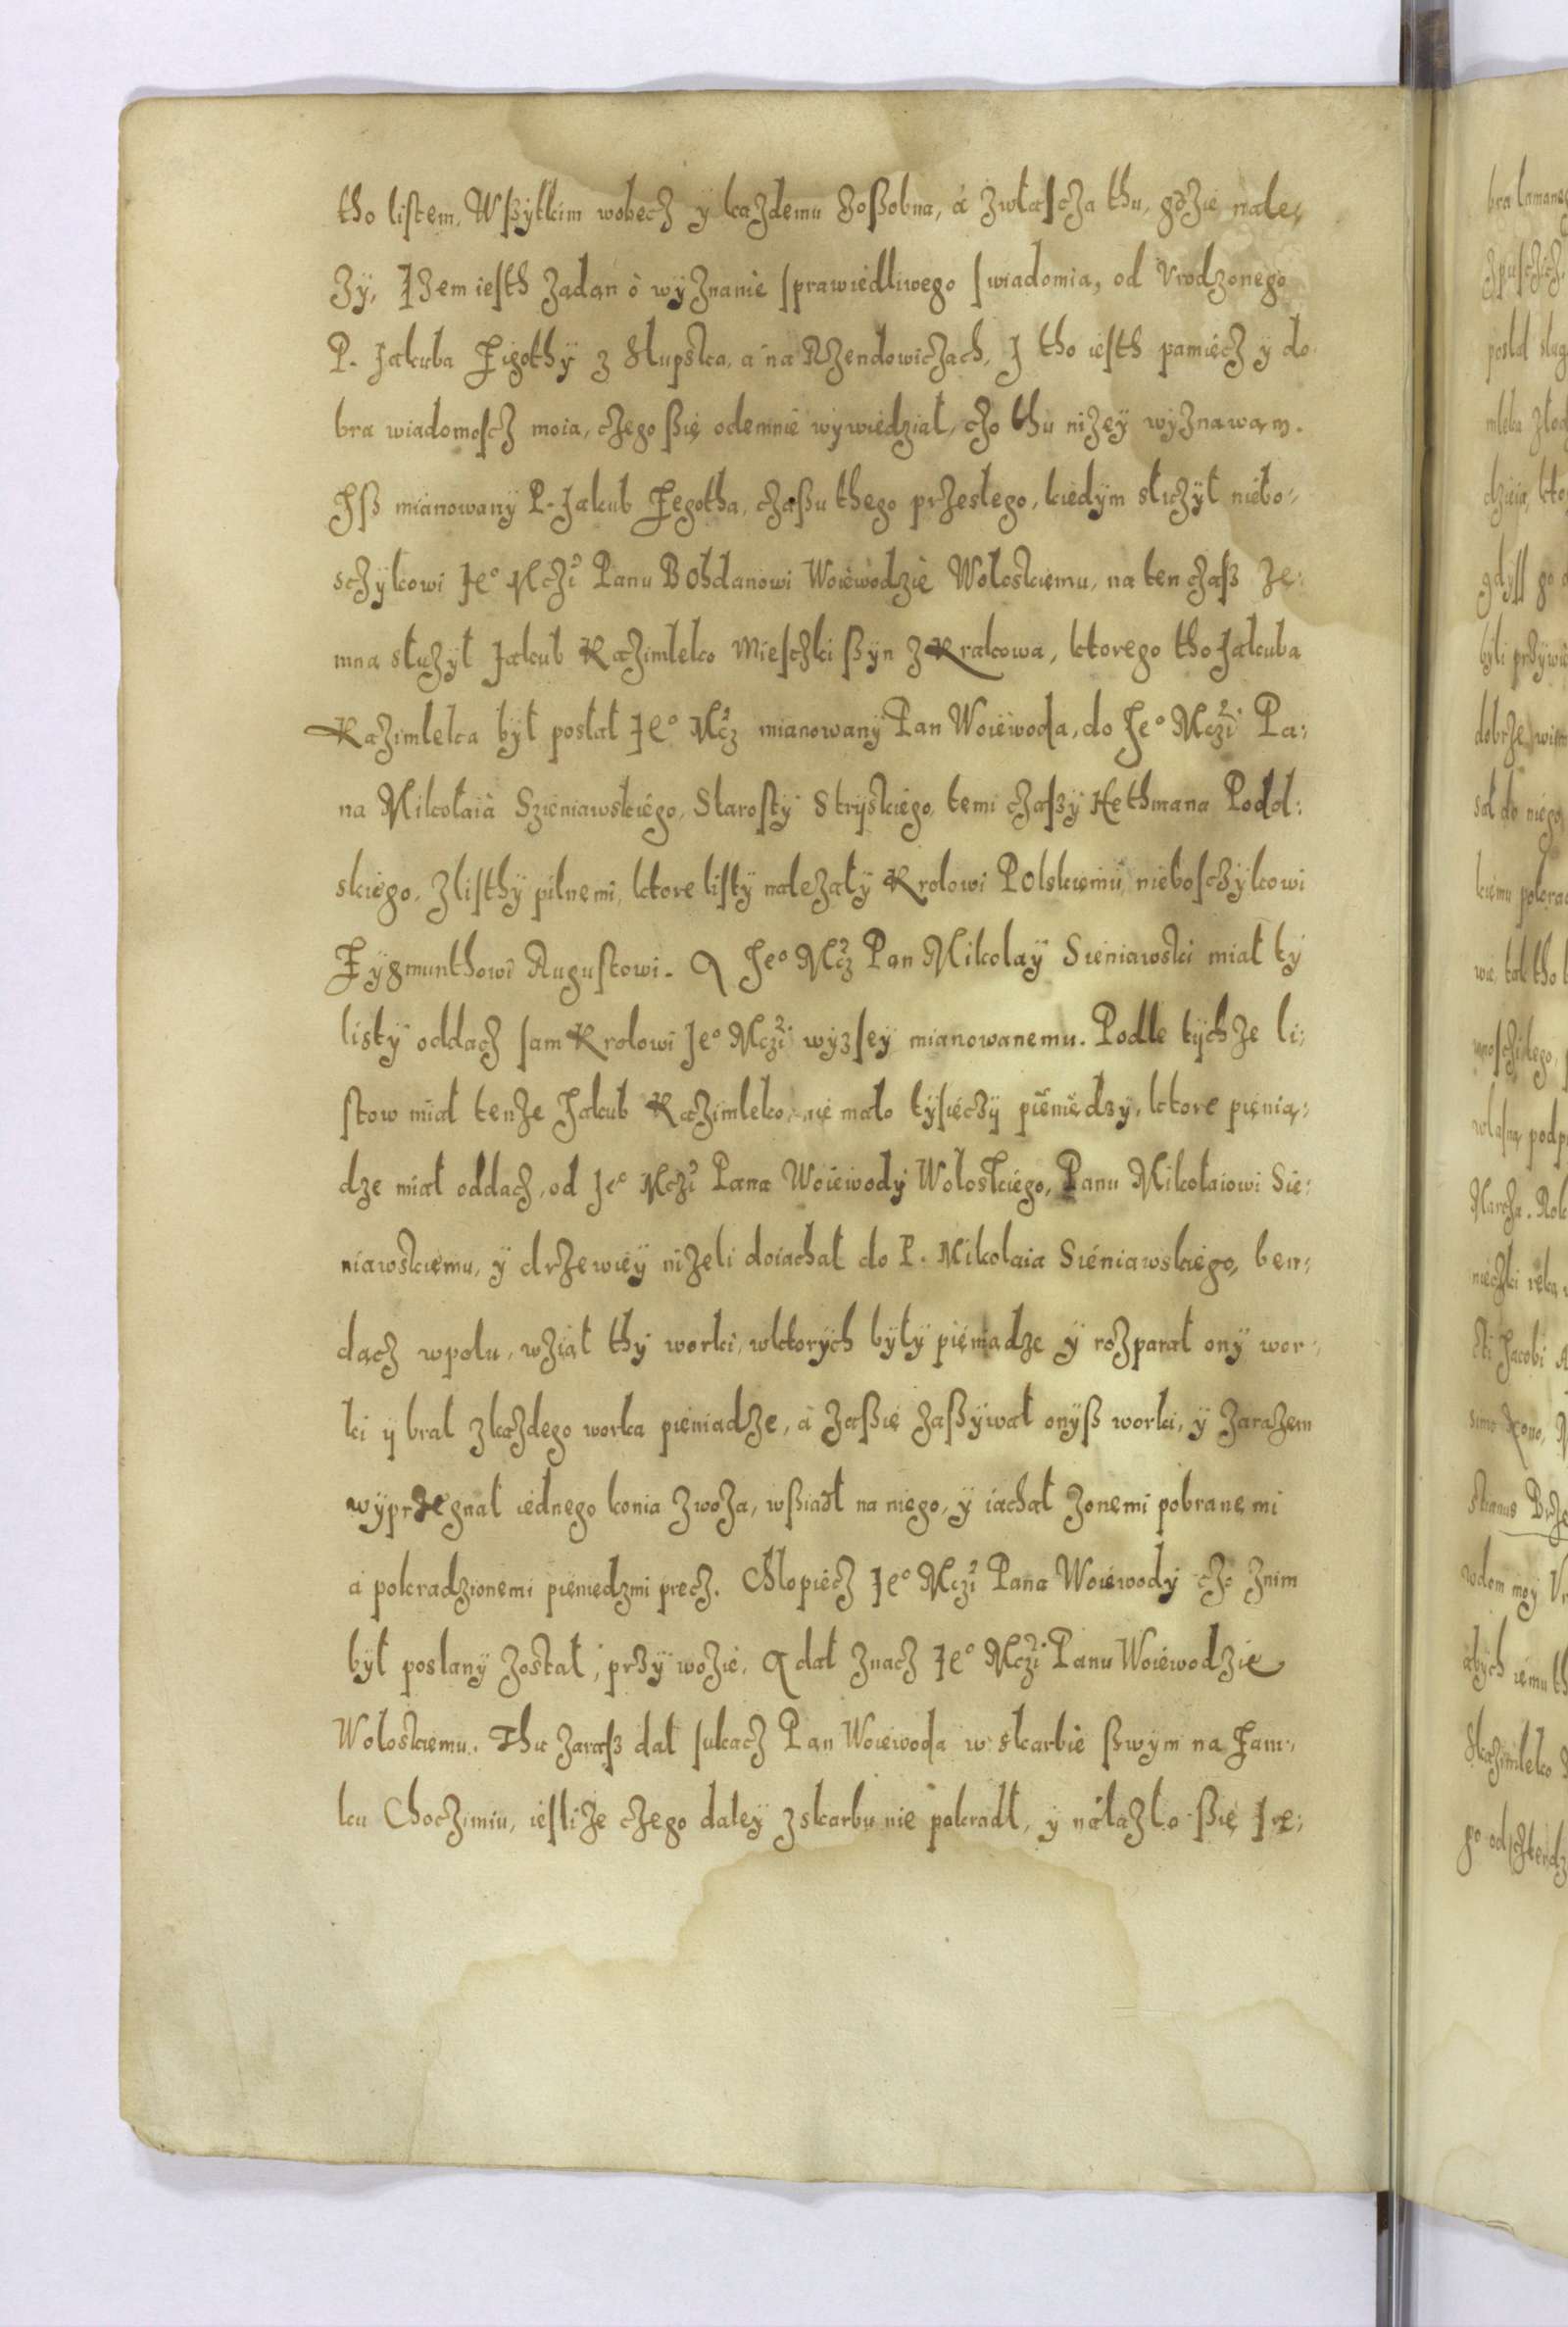 tho listem, Wßytkim wobecz y kazdemu zoßobna, á zwłasczа thu, gdzie nale:
zy, Jzem iesth zadan o wyznanie sprawiedliwego swiadomia, od Vrodzonego
P. Jakuba Zegothy z Slupska, a na Rzendowiczach, J tho iesth pamięcz y do
bra wiadomoscz moia, czego ßię odemnie wywiedział, czo thu nizey wyznawam.
Jß mianowany P. Jakub Zegotha, czaßu thego przesłego, kiedym słuzył niebo:
sczykowi Jeº Mczi Panu Bohdanowi Woiewodzie Wołoskiemu, na ten czaß ze:
mna słuzył Jakub Kazimleko Miesczki ßyn z Krakowa, ktorego tho Jakuba
Kazimleka był posłał Jeº Mcz mianowany Pan Woiewoda, do Jeº Mczi Pa:
na Mikołaia Szieniawskiego, Starosty Stryskiego, temi czaßy Hethmana Podol:
skiego, z listhy pilnemi, ktore listy nalezały Krolowi Polskiemu nieboszczykowi
Zygmunthowi Augustowi. A Jeº Mcz Pan Mikolay Sieniawski miał ty
listy oddacz sam Krolowi Jeº Mczi wyzsey mianowanemu. Podle tychze li:
stow miał tenze Jakub Kazimleko, nie mało tysięczy pieniędzy, ktore pienią:
dze miał oddacz, od Jeº Mczi Pana Woiewody Wołoskiego, Panu Mikołaiowi Sie:
niawskiemu, y drzewiey nizeli doiachał do P. Mikolaia Sieniawskiego, ben:
dacz wpolu, wział thy worki, wktorych były pieniadze y rozparał ony wor:
ki y brał zkazdego worka pieniadze, a zaßię zaßywał onyß worki, y zarazem
wyprzegnał iednego konia zwoza, wßiadł na niego, y iachał zonemi pobranemi
a pokradzionemi pieniedzmi precz. Chłopiecz Jeº Mczi Pana Woiewody czo znim
był poslany został, przy wozie, A dał znacz Jeº Mczi Panu Woiewodzie
Wołoskiemu. Thu zaraß dał sukacz Pan Woiewoda w skarbie ßwym na Zam:
ku Choczimiu, iesli ze czego daley zskarbu nie pokradł, y nálazło ßię